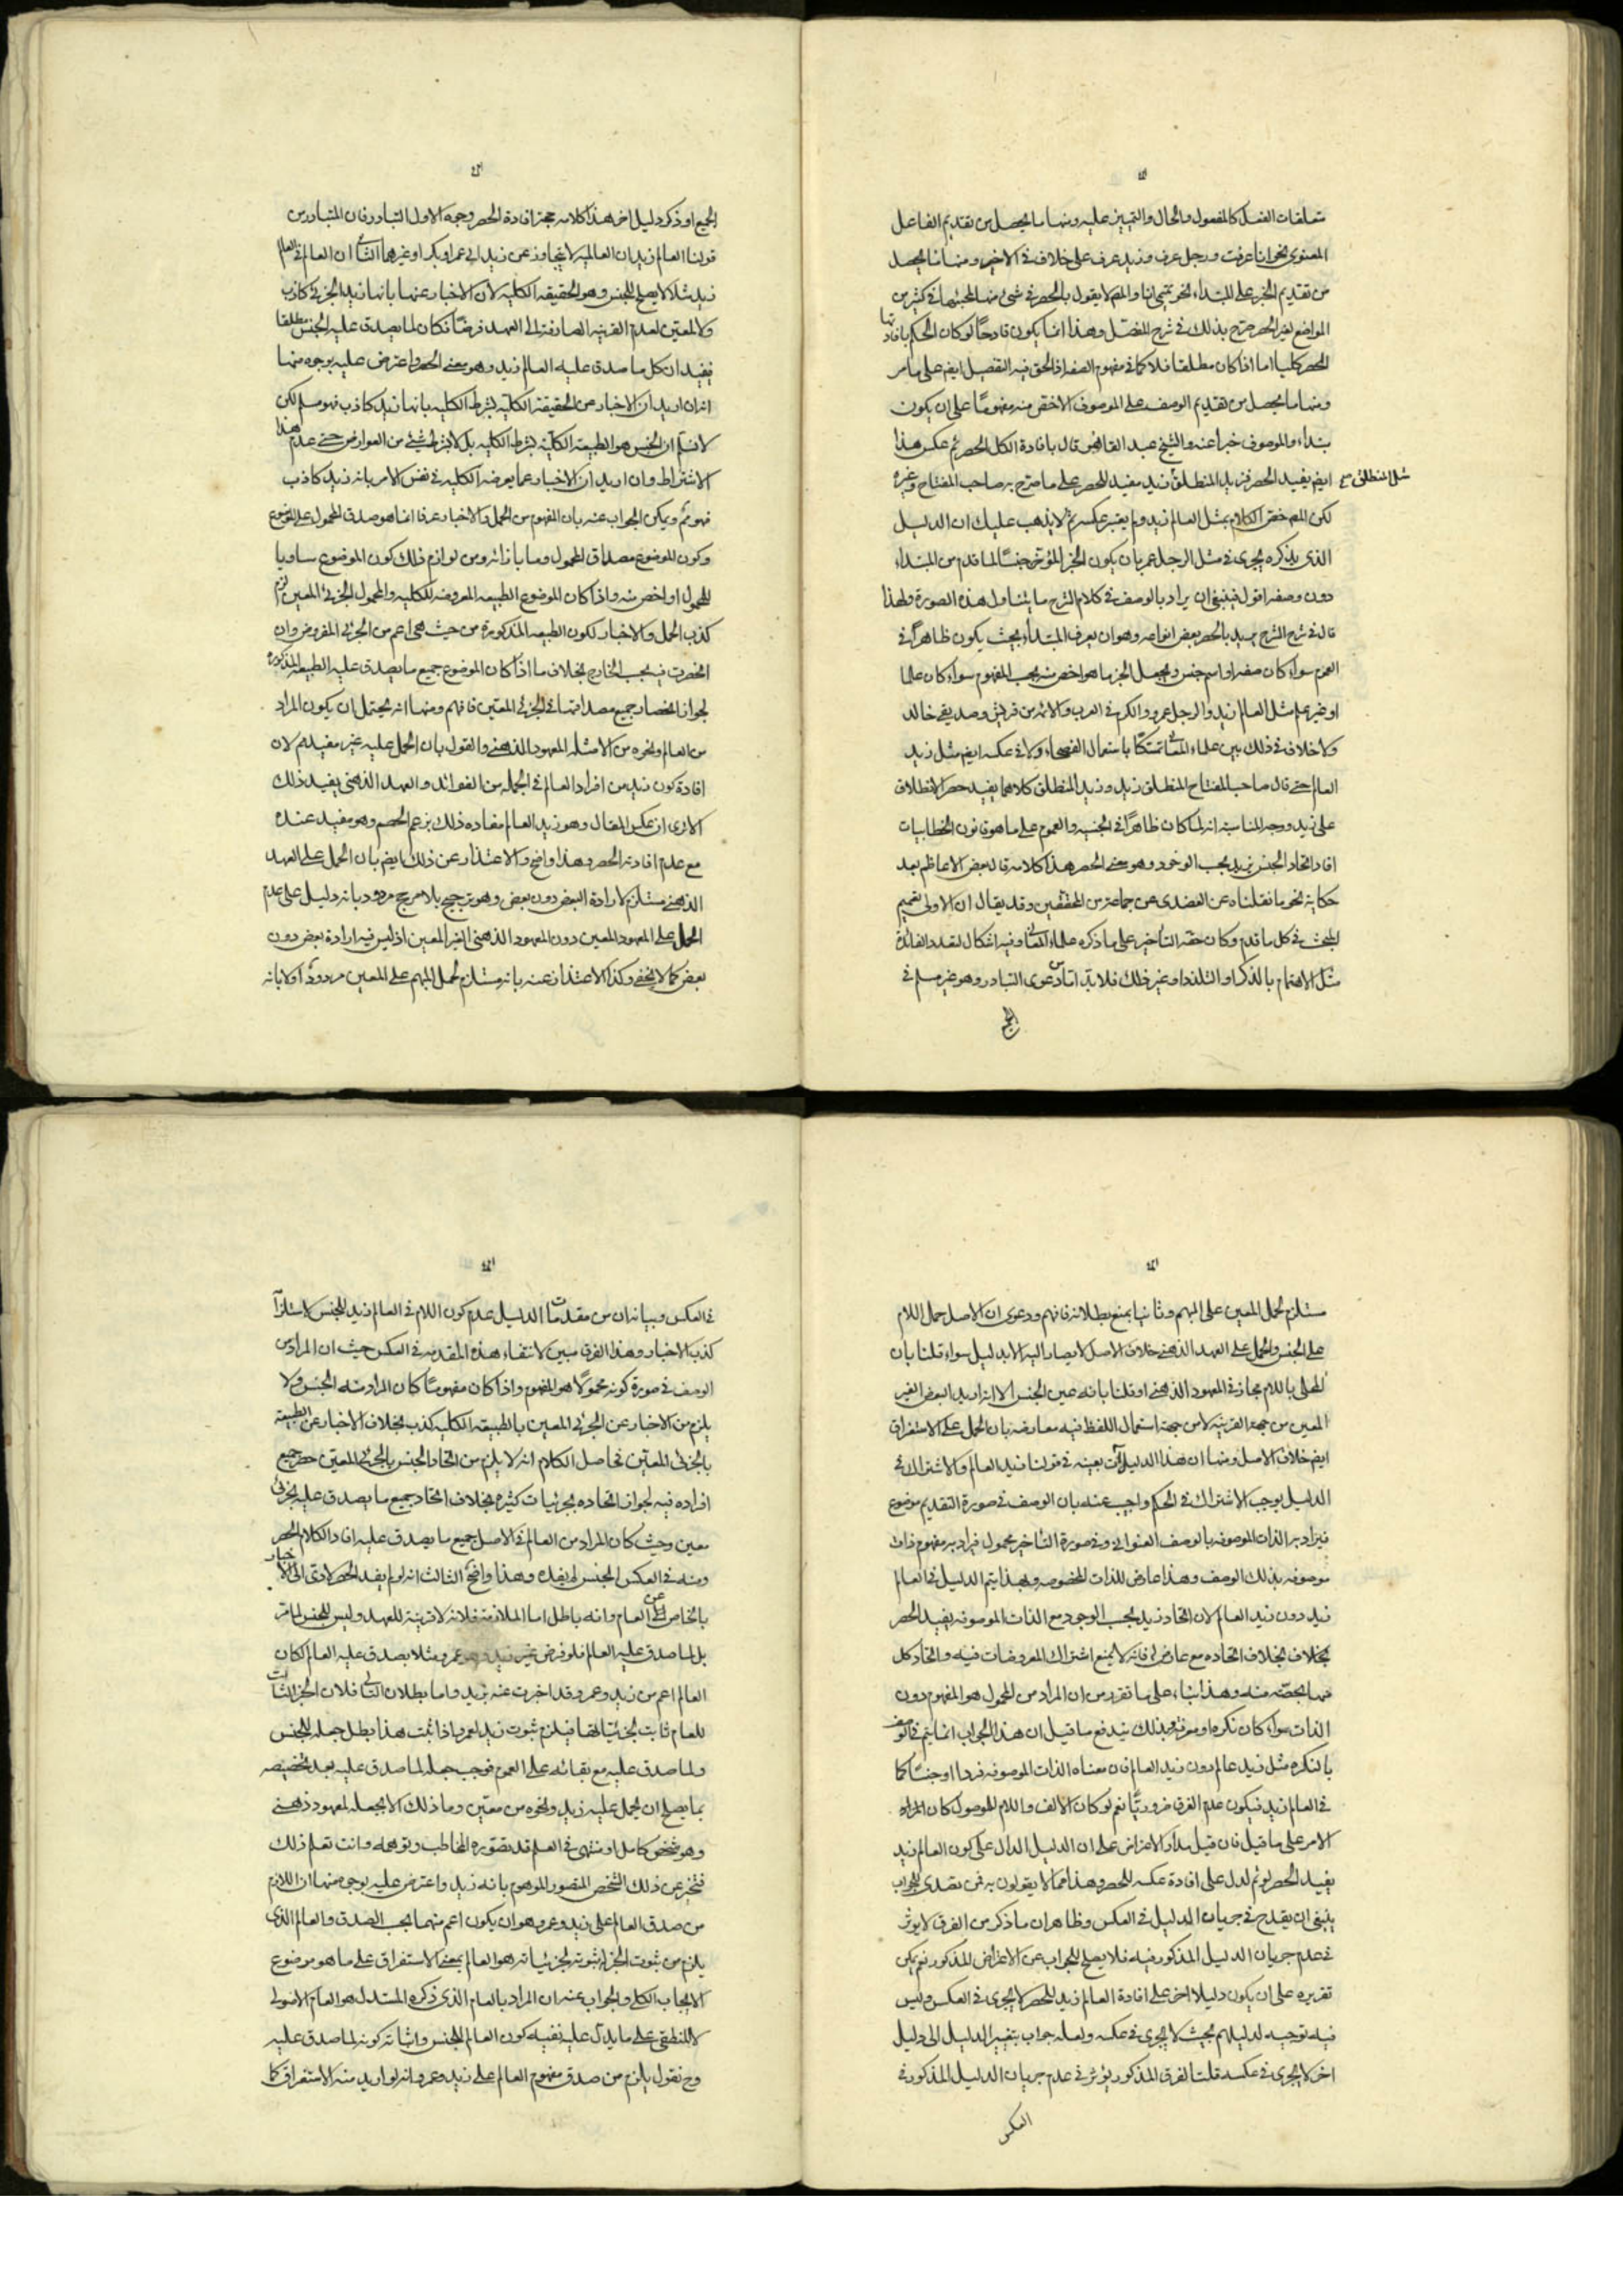 متعلقات الفعل كالمفعول والحال والتمييز عليه ومنها ما يحصل من تقديم الفاعل
المعنوي نحو انا عرفت ورجل عرف وزيد عرف على خلاف في الاخير ومنها ما يحصل
من تقديم الخبر على المبتداء نحو تميمي انا والمص لا يقول بالحصر في شئ منها لمجيئها في كثير من
المواضع لغير الحصر صرح بذلك في شرح المفصل وهذا انما يكون قادحًا لو كان الحكم بافادتها
الحصر كليا اما اذا كان مطلقا فلا كما في مفهوم الصفه اذ الحق فيه التفصيل ايضا على ما مر
ومنها ما يحصل من تقديم الوصف على الموصوف الاخص منه مفهومًا على ان يكون
مبتداء والموصوف خبرا عنه والشيخ عبد القاهر قال بافادة الكل الحصر ثم عكس هذا
مثل المنطلق صح
ايضا يفيد الحصر فزيد المنطلق زيد مفيد للحصر على ما صرح به صاحب المفتاح وغيره
لكن المص خص الكلام بمثل العالم زيد ولم يعتبر عكسه ثم لا يذهب عليك ان الدليل
الذي يذكره يجري في مثل الرجل عمرو بان يكون الخبر المؤخر جنسًا لما قدم من المبتداء
دون وصفه اقول فينبغي ان يراد بالوصف في كلام الشرح ما يتناول هذه الصورة ولهذا
قال في شرح الشرح يريد بالحصر بعض انواعه وهو ان يعرف المبتداء بحيث يكون ظاهراً في
العموم سواء كان صفه او اسم جنس ويجعل الخبر ما هو اخص منه بحسب المفهوم سواء كان علما
او غير علم مثل العالم زيد والرجل عمرو والكرم في العرب والائمة من قريش وصديقي خالد
ولا خلاف في ذلك بين علماء المعاني تمسكًا باستعمال الفصحاء ولا في عكسه ايضا مثل زيد
العالم حتى قال صاحب المفتاح المنطلق زيد وزيد المنطلق كلاهما يفيد حصر الانطلاق
على زيد ووجه المناسبة انه لما كان ظاهراً في الجنسيه والعموم على ما هو قانون الخطابيات
افاد اتحاد الجنس بزيد بحسب الوجود وهو معنى الحصر هذا كلامه قال بعض الاعاظم بعد
حكاية نحو ما نقلناه عن العضدي عن جماعة من المحققين وقد يقال ان الاولى تعميم
البحث في كل ما قدم وكان حقه التأخير على ما ذكره علماء المعاني وفيه اشكال لتعدد الفائدة
مثل الاهتمام بالذكر او التلذذ او غير ذلك فلا بد اما من دعوى التبادر وهو غير مسلم في
الجميع
الجميع او ذكر دليل اخر هذا كلامه حجة افادة الحصر وجوه الاول التبادر فان المتبادر من
قولنا العالم زيد ان العالميه لا يتجاوز عن زيد الى عمرو او بكر او غيرهما الثاني ان العالم في العالم
زيد مثلا لا يصلح للجنس وهو الحقيقه الكليه لان الاخبار عنها بانها زيد الجزئي كاذب
ولا لمعين لعدم القرينه الصارفة الى العهد فرضًا فكان لما يصدق عليه الجنس مطلقا
فيفيد ان كل ما صدق عليه العالم زيد وهو معنى الحصر واعترض عليه بوجوه منها
انه ان اريد ان الاخبار عن الحقيقة الكليه بشرط الكليه بانها زيد كاذب فهو مسلم لكن
لا نسلم ان الجنس هو الطبيعة الكليه بشرط الكليه بل لا بشرط شئ من العوارض حتى عدم هذا
الاشتراط وان اريد ان الاخبار عما يعرضه الكليه في نفس الامر بانه زيد كاذب
فهو ثم ويمكن الجواب عنه بان المفهوم من الحمل والاخبار عرفا انما هو صدق المحمول على الموضوع
وكون الموضوع مصداق المحمول وما بازائه ومن لوازم ذلك كون الموضوع مساويا
للمحمول او اخص منه واذا كان الموضوع الطبيعه المعروضه للكليه والمحمول الجزئي المعين لزم
كذب الحمل والاخبار لكون الطبيعه المذكورة من حيث هي اعم من الجزئي المفروض وان
انحصرت فيه بحسب الخارج بخلاف ما اذا كان الموضوع جميع ما يصدق عليه الطبيعه المذكورة
لجواز انحصار جميع مصداقتها في الجزئي المعين فافهم ومنها انه يحتمل ان يكون المراد
من العالم ونحوه من الامثله المعهود الذهني والقول بان الحمل عليه غير مفيد ثم لان
افادة كون زيد من افراد العالم في الجمله من الفوائد والعهد الذهني يفيد ذلك
الا ترى ان عكس المقال وهو زيد العالم مفاده ذلك بزعم الخصم وهو مفيد عنده
مع عدم افادته الحصر وهذا واضح والاعتذار عن ذلك ايضا بان الحمل على العهد
الذهني مستلزم لارادة البعض دون بعض وهو ترجيح بلا مرجح مردود بانه دليل على عدم
الحمل على المعهود المعين دون المعهود الذهني الغير المعين اذ ليس فيه ارادة بعض دون
بعض كما لا يخفى وكذا الاعتذار عنه بانه مستلزم لحمل المبهم على المعين مردود اولا بانه
مستلزم لحمل المعين على المبهم وثانيا بمنع بطلانه فافهم ودعوى ان الاصل حمل اللام
على الجنس والحمل على العهد الذهني خلاف الاصل لا يصار اليه الا بدليل سواء قلنا بان
المحلى باللام مجاز في المعهود الذهني او قلنا بانه عين الجنس الا انه اريد البعض الغير
المعين من جهة القرينه لا من جهة استعمال اللفظ فيه معارضه بان الحمل على الاستغراق
ايضا خلاف الاصل ومنها ان هذا الدليل آت بعينه في قولنا زيد العالم والاشتراك في
الدليل يوجب الاشتراك في الحكم واجيب عنه بان الوصف في صورة التقديم موضوع
فيراد به الذات الموصوفه بالوصف العنواني وفي صورة التأخير محمول فيراد به مفهوم ذات
موصوفه بذلك الوصف وهذا عارض للذات المخصوصه وبهذا يتم الدليل في العالم
زيد دون زيد العالم لان اتحاد زيد بحسب الوجود مع الذات الموصوفه يفيد الحصر
بخلاف بخلاف اتحاده مع عارض له فانه لا يمنع اشتراك المعروضات فيه واتحاد كل
منها بحصته منه وهذا بناء على ما تقرر من ان المراد من المحمول هو المفهوم دون
الذات سواء كان نكره او معرفة وبذلك يندفع ما قيل ان هذا الجواب انما يتم في الوصف
بالنكره مثل زيد عالم دون زيد العالم فان معناه الذات الموصوفه فردا او جنسًا كما
في العالم زيد فيكون عدم الفرق ضروريًا نعم لو كان الالف واللام للموصول كان المراد
الامر على ما قيل فان قيل مدار الاعتراض على ان الدليل الدال على كون العالم زيد
يفيد الحصر لو تم لدل على افادة عكسه للحصر وهذا مما لا يقولون به فمن تصدى للجواب
ينبغي ان يقدح في جريان الدليل في العكس وظاهر ان ما ذكر من الفرق لا يوثر
في عدم جريان الدليل المذكور فيه فلا يصلح للجواب عن الاعتراض المذكور نعم يمكن
تقريره على ان يكون دليلا اخر على افادة العالم زيد للحصر لا يجري في العكس وليس
فيه توجيه لدليلهم بحيث لا يجري في عكسه ولعله جواب بتغيير الدليل الى دليل
اخر لا يجري في عكسه قلنا الفرق المذكور يؤثر في عدم جريان الدليل المذكور في
العكس
في العكس وبيانه ان من مقدمات الدليل عدم كون اللام في العالم زيد للجنس لاستلزامه
كذب الاخبار وهذا الفرق مبين لانتفاء هذه المقدمه في العكس حيث ان المراد من
الوصف في صورة كونه محمولًا هو المفهوم واذا كان مفهومًا كان المراد منه الجنس ولا
يلزم من الاخبار عن الجزئي المعين بالطبيعه الكليه كذب بخلاف الاخبار عن الطبيعة
بالجزئي المعين فحاصل الكلام انه لا يلزم من اتحاد الجنس بالجزئي المعين حصر جميع
افراده فيه لجواز اتحاده بجزئيات كثيره بخلاف اتحاد جميع ما يصدق عليه بجزئي
معين وحيث كان المراد من العالم في الاصل جميع ما يصدق عليه افاد الكلام الحصر
ومنه في العكس الجنس لم يفده وهذا واضح الثالث انه لو لم يفد الحصر لادى الى الاخبار
بالخاص عن العام وانه باطل اما الملازمه فلانه لا قرينة للعهد وليس للجنس لما مر
بل لما صدق عليه العالم فلو فرض غير زيد وهو عمرو مثلا يصدق عليه العالم لكان
العالم اعم من زيد وعمرو وقد اخبرت عنه بزيد واما بطلان التالي فلان الجزء الثابت
للعام ثابت لجزئياتها فيلزم ثبوت زيد لعمرو واذا ثبت هذا بطل جعله للجنس
ولما صدق عليه مع بقائه على العموم فوجب جعله لما صدق عليه بعد تخصيصه
بما يصلح ان يحمل عليه زيد ونحوه من معين وما ذلك الا بجعله لمعهود ذهني
وهو شخص كامل او منتهي في العلم قد يصوره المخاطب وتوهمه وانت تعلم ذلك
فتخبر عن ذلك الشخص المتصور الموهوم بانه زيد واعترض عليه بوجوه منها ان اللازم
من صدق العالم على زيد وعمرو هو ان يكون اعم منهما بحسب الصدق والعالم الذي
يلزم من ثبوت الجزء له ثبوته لجزئياته هو العالم بمعنى الاستغراق على ما هو موضوع
الايجاب الكلي والجواب عنه ان المراد بالعام الذي ذكره المستدل هو العام الاصولي
لا المنطقي على ما يدل عليه نفيه كون العالم للجنس واثباته كونه لما صدق عليه
وح نقول يلزم من صدق مفهوم العالم على زيد وعمرو انه لو اريد منه الاستغراق كما